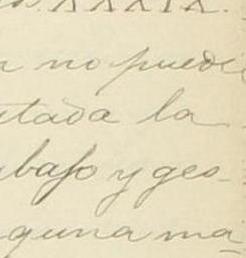 XXXIX.
no puede
tada la
bajo y ges-
guna ma-